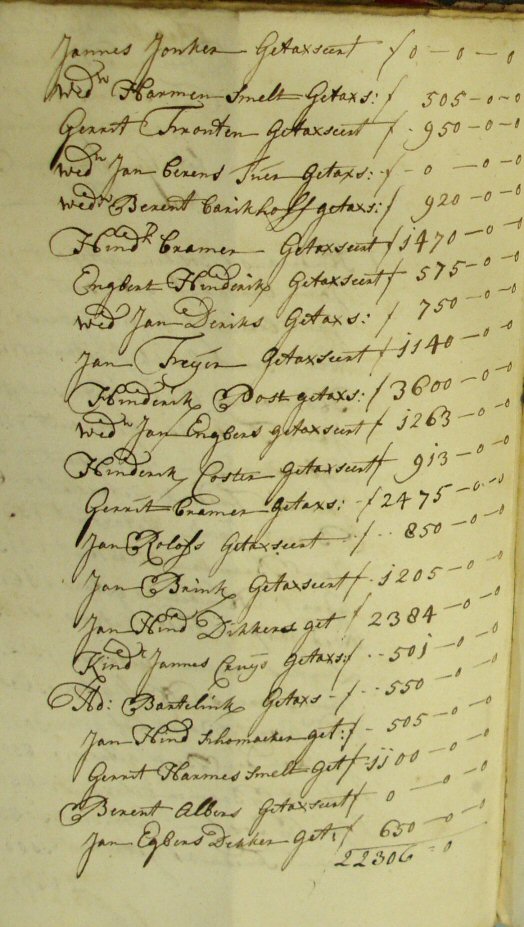 Jannes Jonker Getaxseert f 0 - 0 - 0
Wed:w Harmen Smelt Getaxs: f 505 - 0 - 0
Gerrit Getaxseert f 950 - 0 - 0
Wed:w Jan berens Getaxs: f - 0 - 0 - 0
Wed:w Berent barikhoff getaxs: f 920 - 0 - 0
Hind:k Cramer Getaxseert f 1470 - 0 - 0
Engbert Hinderik Getaxseert f 575 - 0 - 0
Wed Jan Deriks Getaxs: f 750 - 0 - 0
Jan Freijer Getaxseert f 1140 - 0 - 0
Hinderik Post getaxs: f 3600 - 0 - 0
Wed:w Jan Engbers getaxseert f 1263 - 0 - 0
Hinderik Coster Getaxseert f 913 - 0 - 0
Gerrit Cramer Getaxs: - f 2475 - 0 - 0
Jan Rolofs Getaxseert f - 850 - 0 - 0
Jan Brink Getaxseert f - 1205 - 0 - 0
Jan Hind Dikkers get f 2384 - 0 - 0
Kind Jannes Cruijs Getaxs: f - 501 - 0 - 0
Ad: Bartelink Getaxs - f - 550 - 0 - 0
Jan Hind Schomaeker get: f - 505 - 0 - 0
Gerrit Harmes Smelt Get f - 1100 - 0 - 0
Berent Albers Getaxseert f 0 - 0 - 0
Jan Egbers Dekker Get: f 650 - 0 - 0
22306 - 0